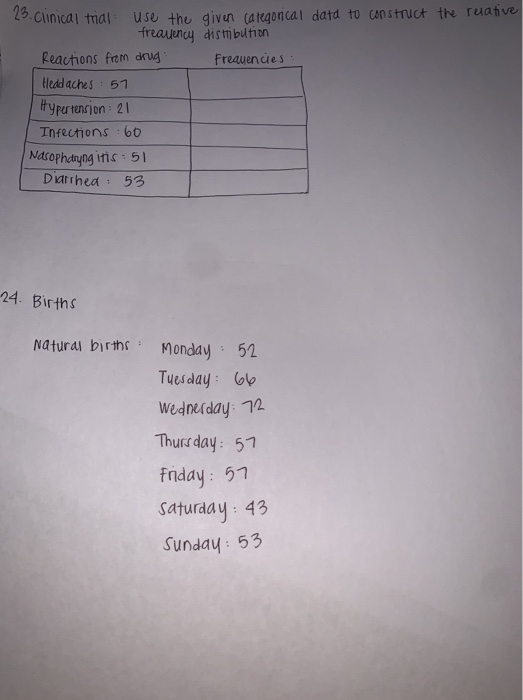 23. Clinical trial: Use the given categorical data to construct the relative
frequency distribution
Reactions from drug: Frequencies:
Headaches: 57
Hypertension: 21
Infections: 60
Nasopharyngitis: 51
Diarrhea: 53
24. Births
Natural births: Monday: 52
Tuesday: 66
Wednesday: 72
Thursday: 57
Friday: 57
Saturday: 43
Sunday: 53